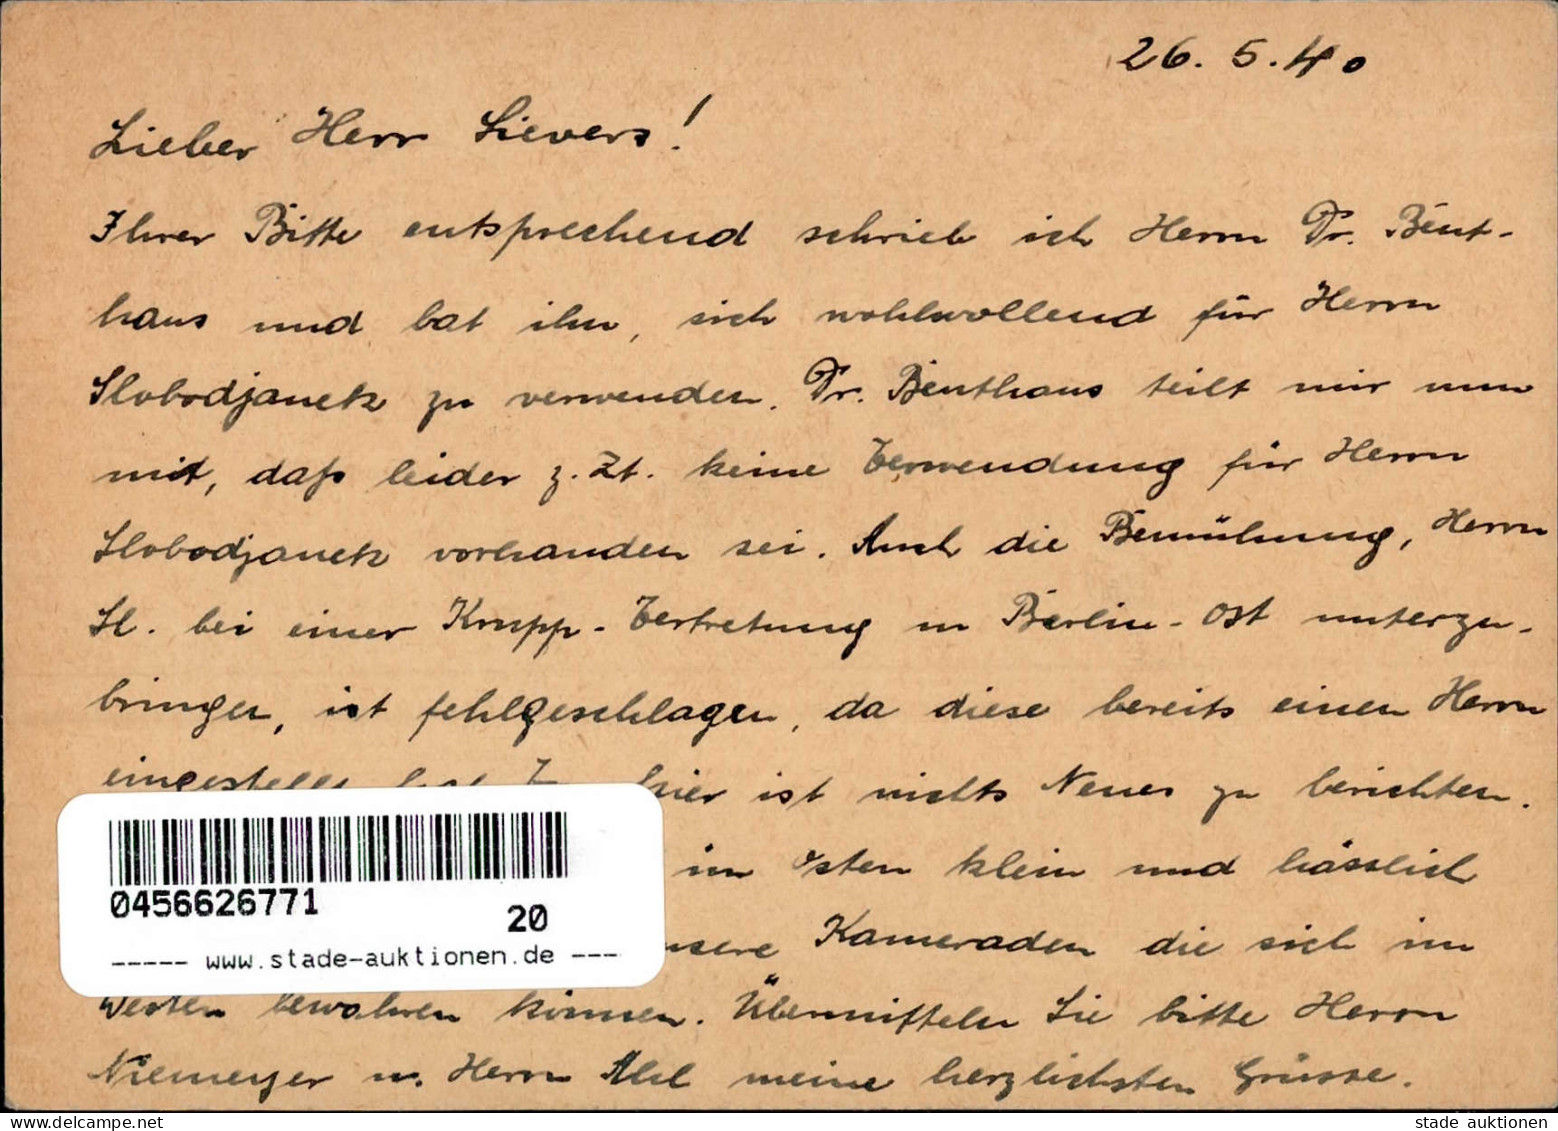 26. 5. 40
Lieber Herr Sievers!
Ihrer Bitte entsprechend schrieb ich Herrn Dr. Bent-
haus und bat ihn, sich wohlwollend für Herrn
Slobodjanek zu verwenden. Dr. Benthaus teilt mir nun
mit, daß leider z. Zt. keine Verwendung für Herrn
Slobodjanek vorhanden sei. Auch die Bemühung, Herrn
Sl. bei einer Krupp-Vertretung in Berlin-Ost unterzu-
bringen, ist fehlgeschlagen, da diese bereits einen Herrn
eingestellt hat. hier ist nichts Neues zu berichten.
im Osten klein und hässlich
unsere Kameraden die sich im
Westen bewahren können. Übermitteln Sie bitte Herrn
Niemeyer u. Herrn Ahl meine herzlichsten Grüsse.
0456626771
20
----- www.stade-auktionen.de ---
stade auktionen